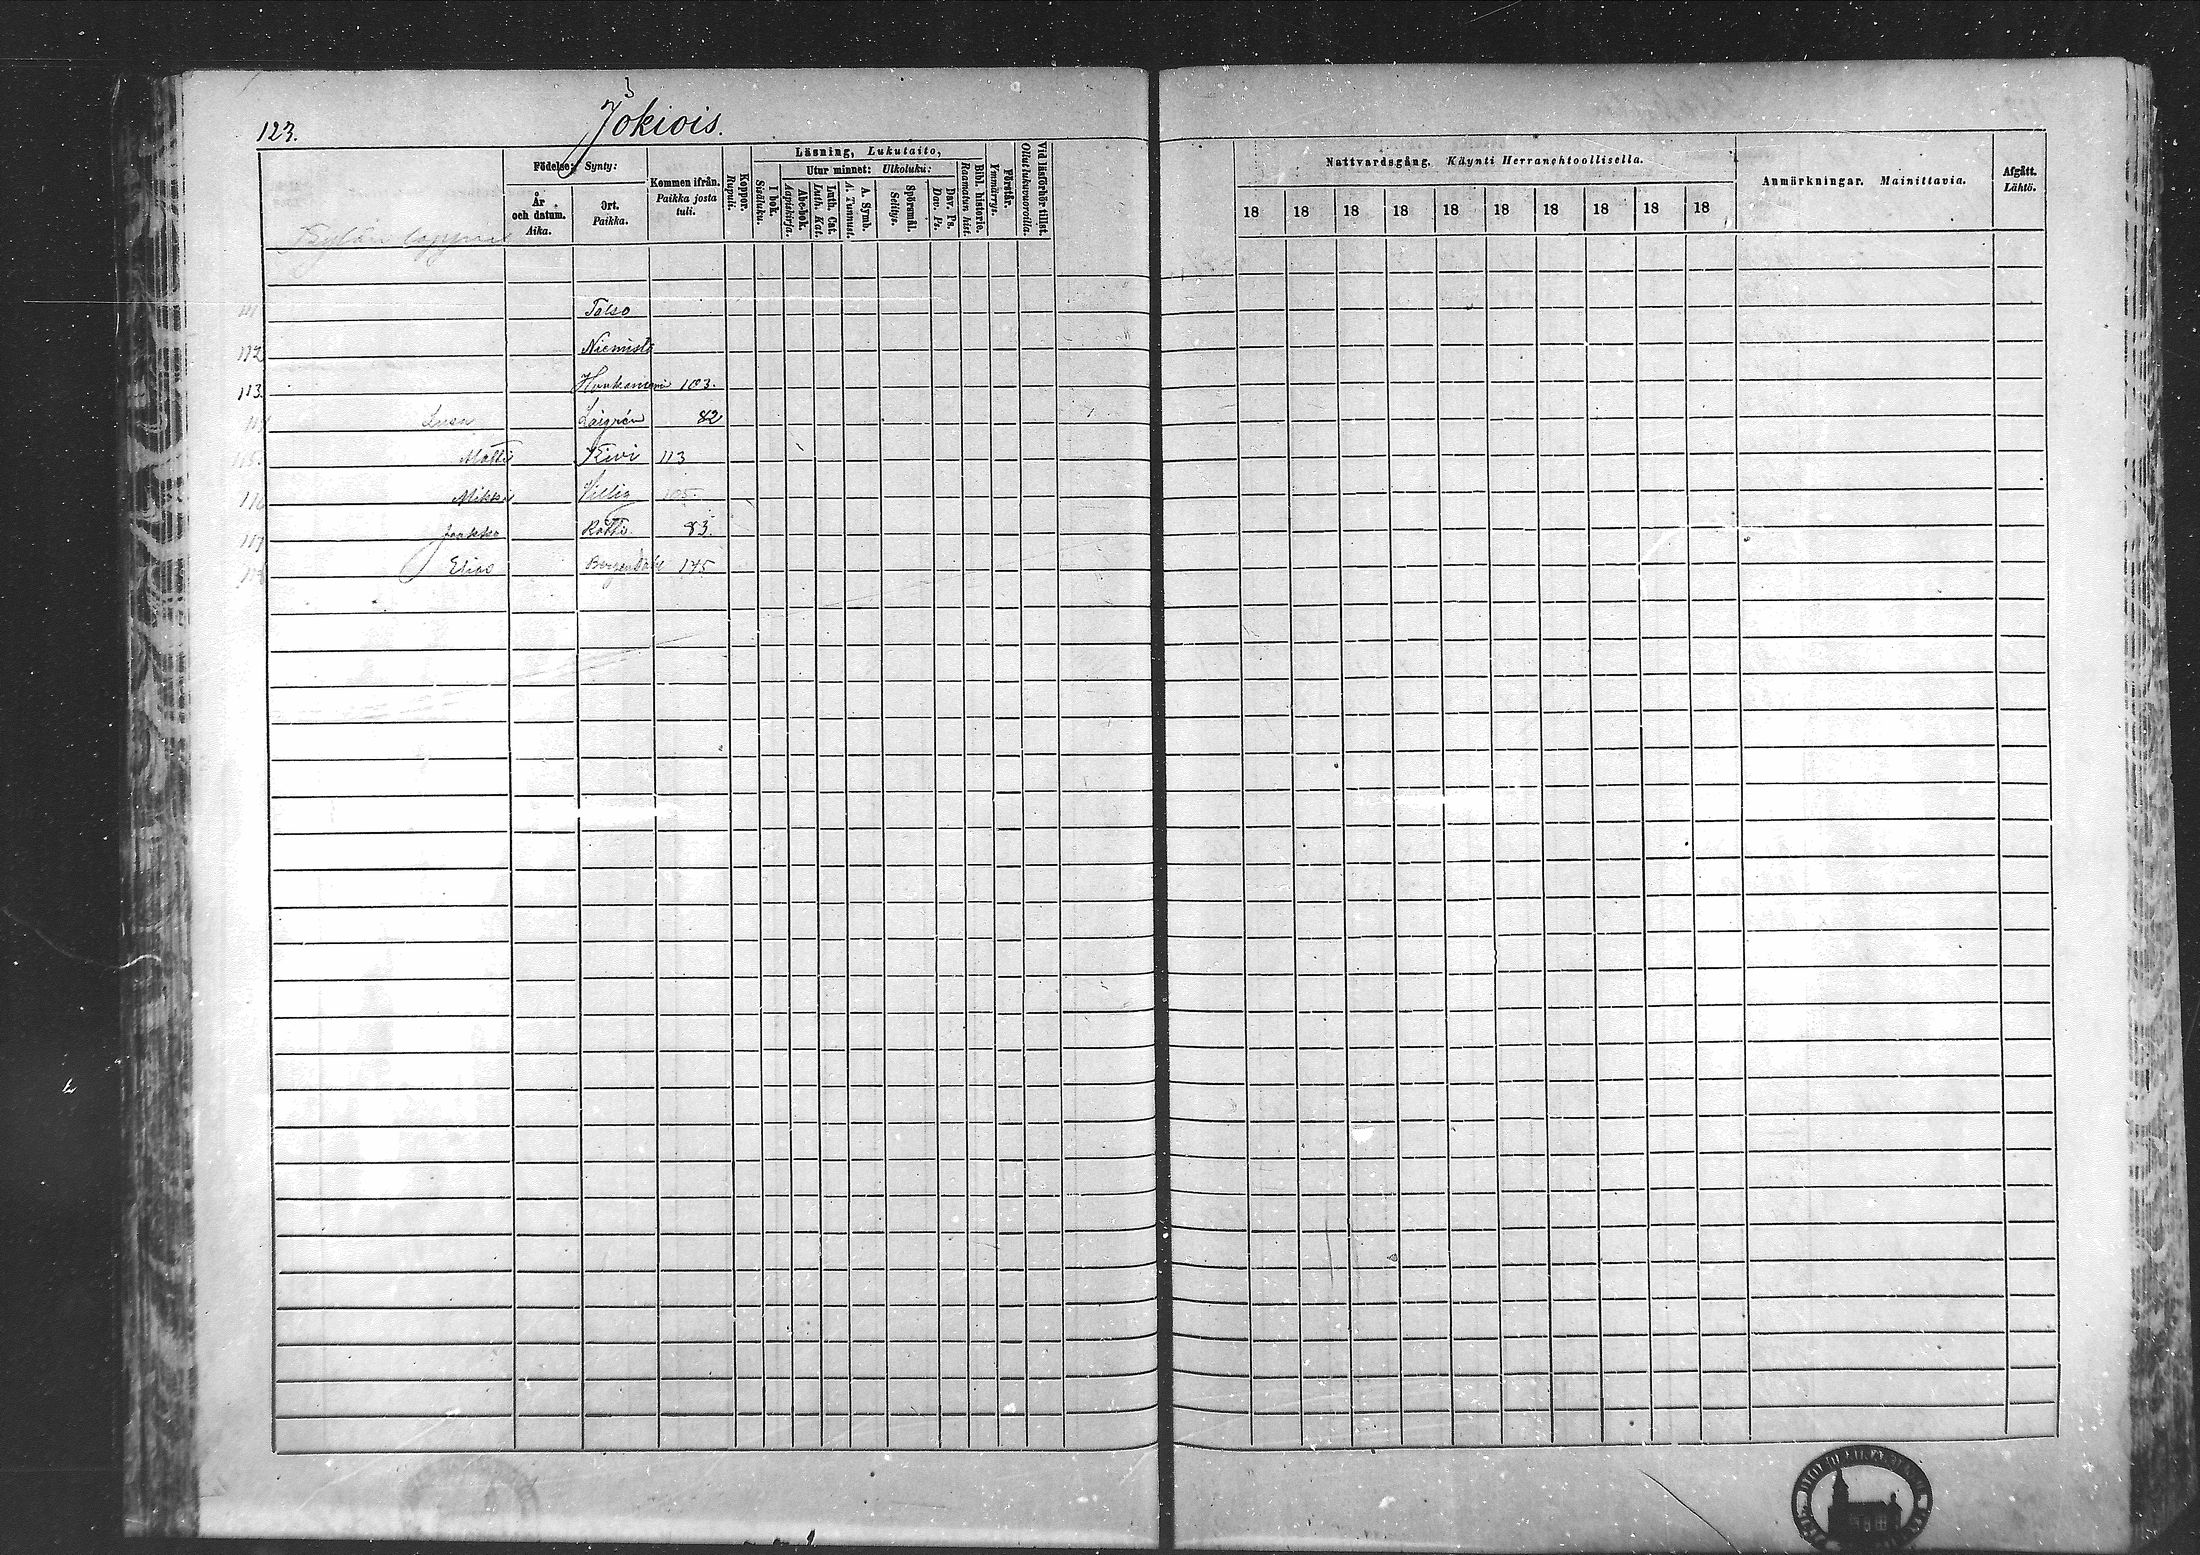 3
123. Jokiois.
Födelse: Synty:
År och datum. Aika.
Ort. Paikka.
Kommen ifrån. Paikka josta tuli.
Koppor. Rupuli.
Läsning, Lukutaito,
I bok. Sisäluku.
Utur minnet: Ulkoluku:
Abc-bok. Aapiskirja.
Luth. Cat. Luth. Kat.
A. Symb. A. Tunnust.
Spörsmål. Selitys.
Dav. Ps. Dav. Ps.
Bibl. historie. Raamatun hist.
Förstår. Ymmärrys.
Vid läsförhör tillst. Ollut lukuvuoroilla.
Nattvardsgång. Käynti Herranehtoollisella.
18 18 18 18 18 18 18 18 18 18
Anmärkningar. Mainittavia.
Afgått. Lähtö.
Kylän
111 Talso
112 Niemistö
113. Honkaniemi 103.
82
115. Matti Kivi 113
116 Mikki 105.
117 Jaakko Rätti. 83.
118 Elias Bergendahl 145